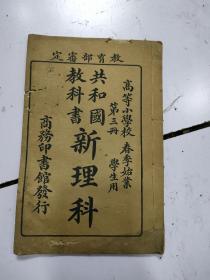 教育部審定
高等小學校 春季始業
第三册 學生用
共和國
教科書
新理科
商務印書館發行